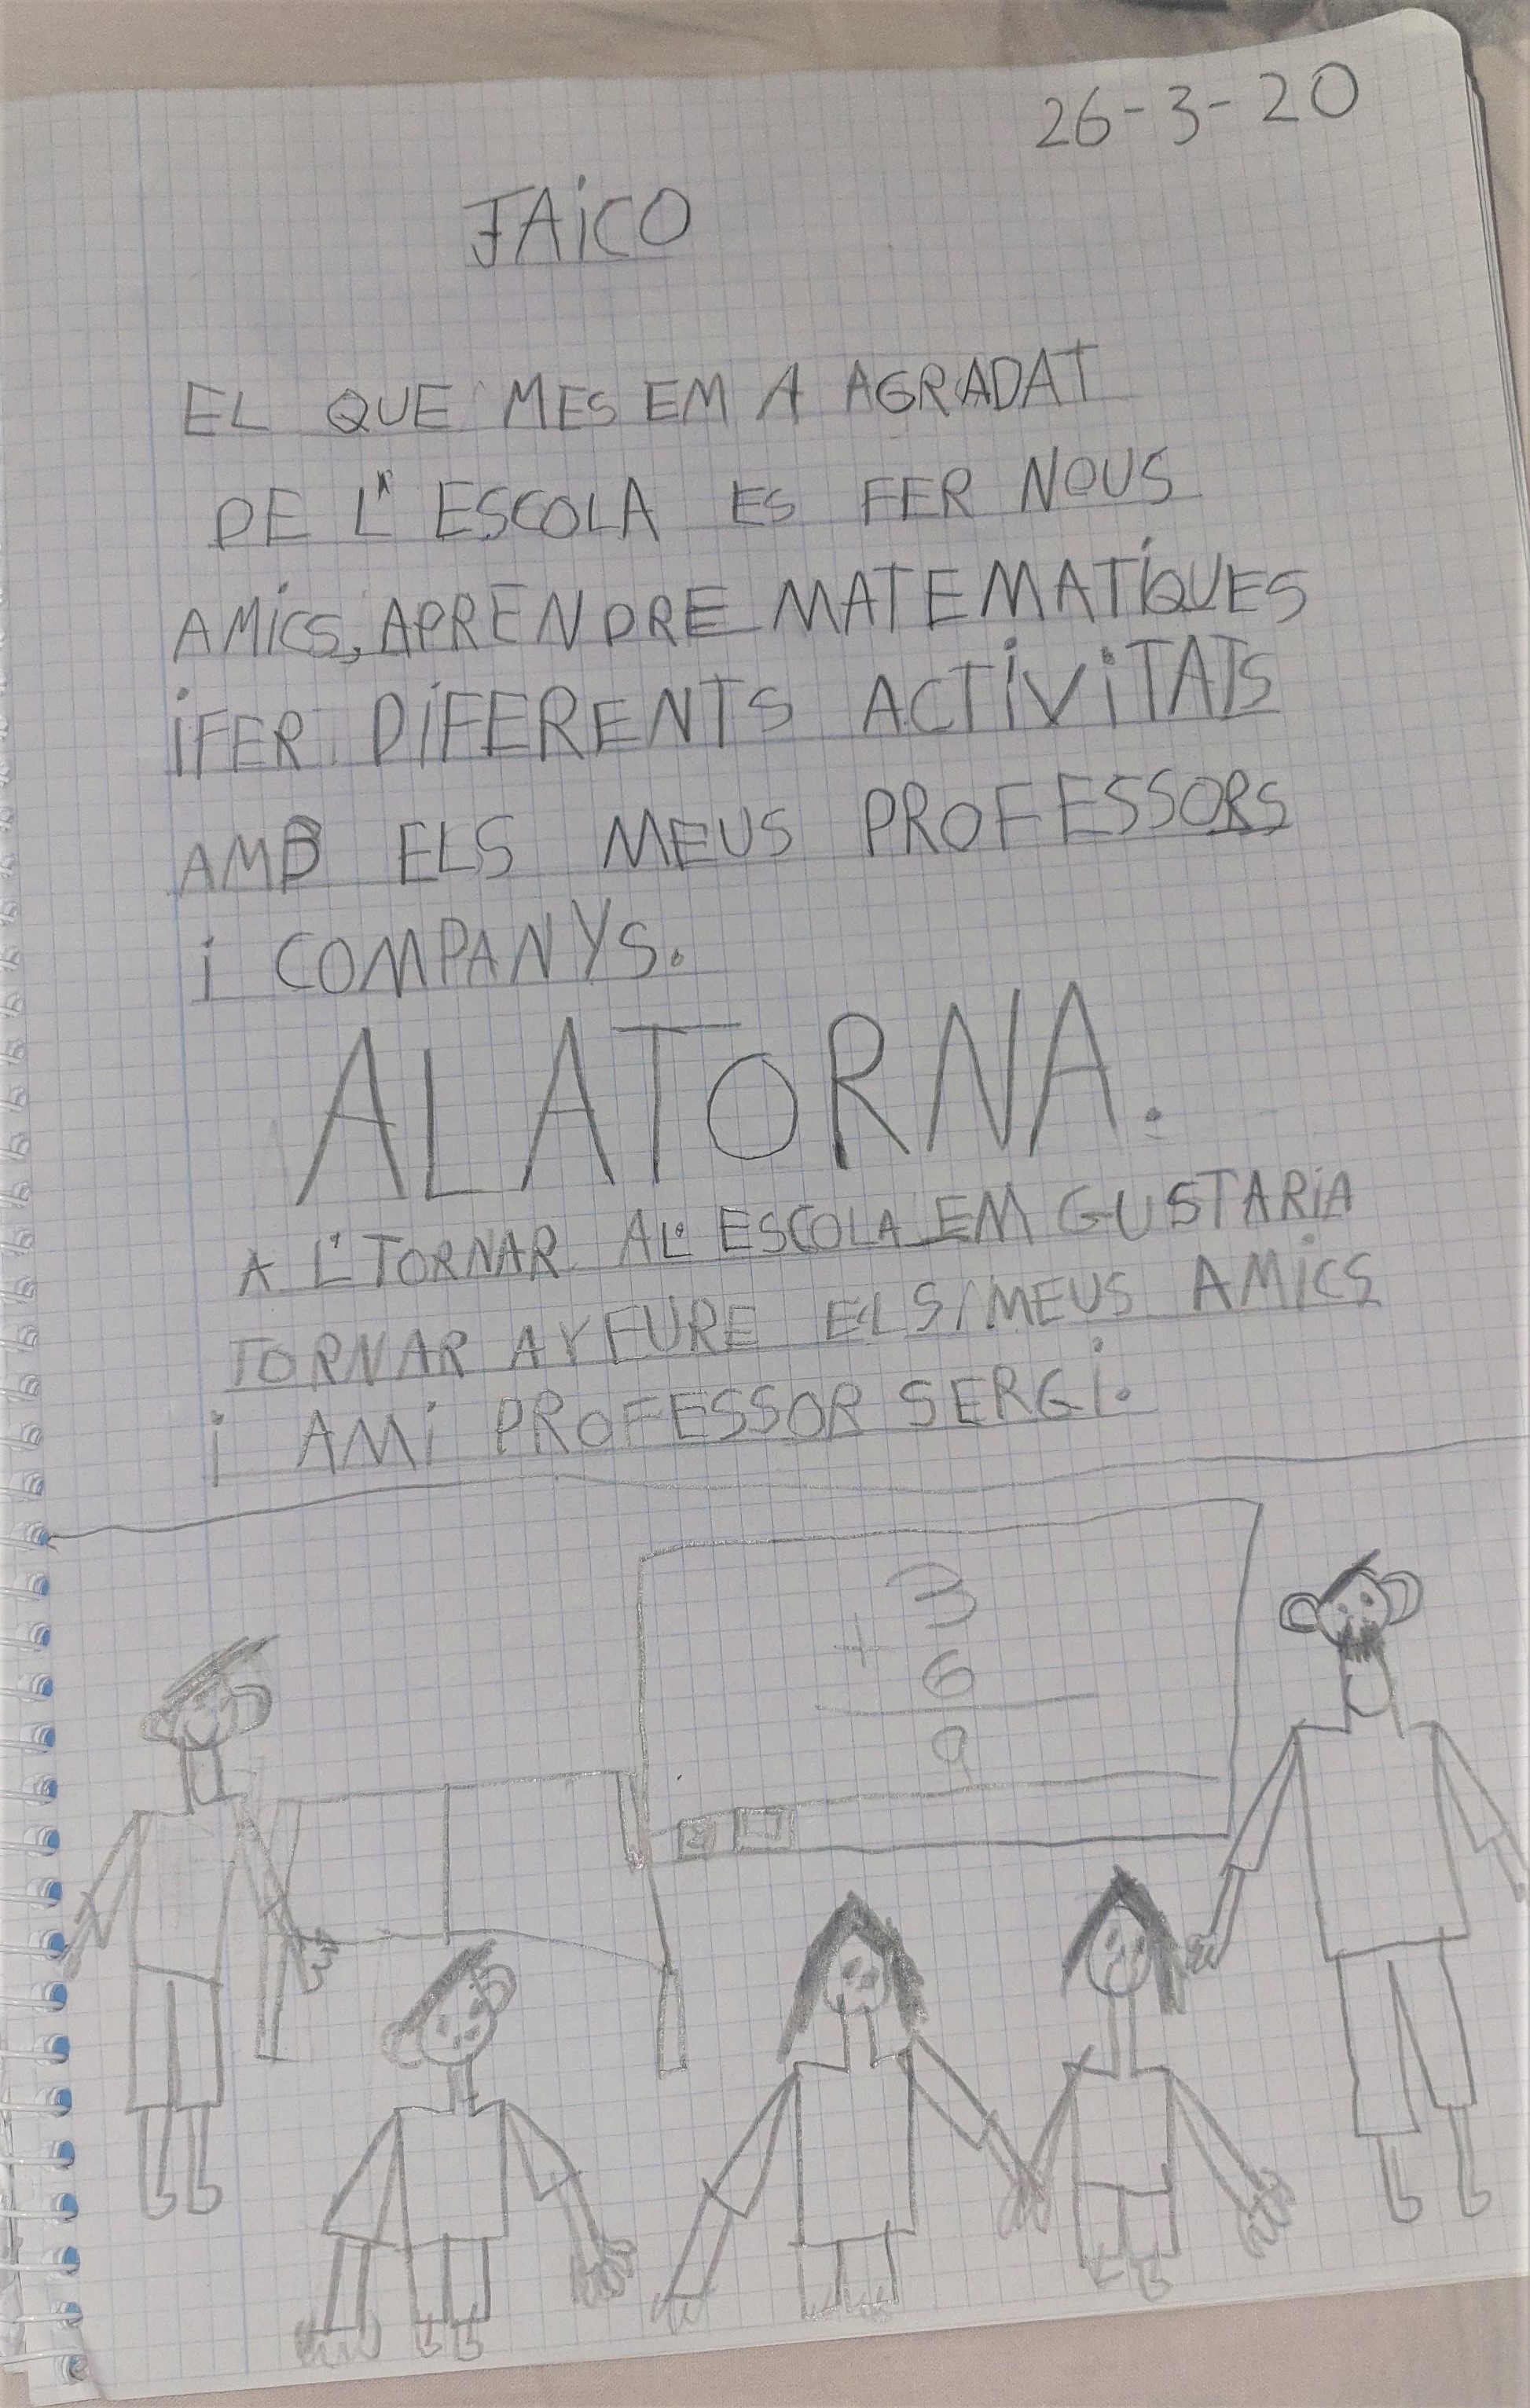 26-3-20
JAiCO
EL QUE MES EM A AGRADAT
DE L' ESCOLA ES FER NOUS
AMiCS, APRENDRE MATEMATiQUES
iFER DiFERENTS ACTiViTATS
AMB ELS MEUS PROFESSORS
i COMPANYS.
ALATORNA.
A L'TORNAR AL' ESCOLA EM GUSTARiA
TORNAR A VEURE ELS MEUS AMiCS
i AMi PROFESSOR SERGi.
3
+ 6
9